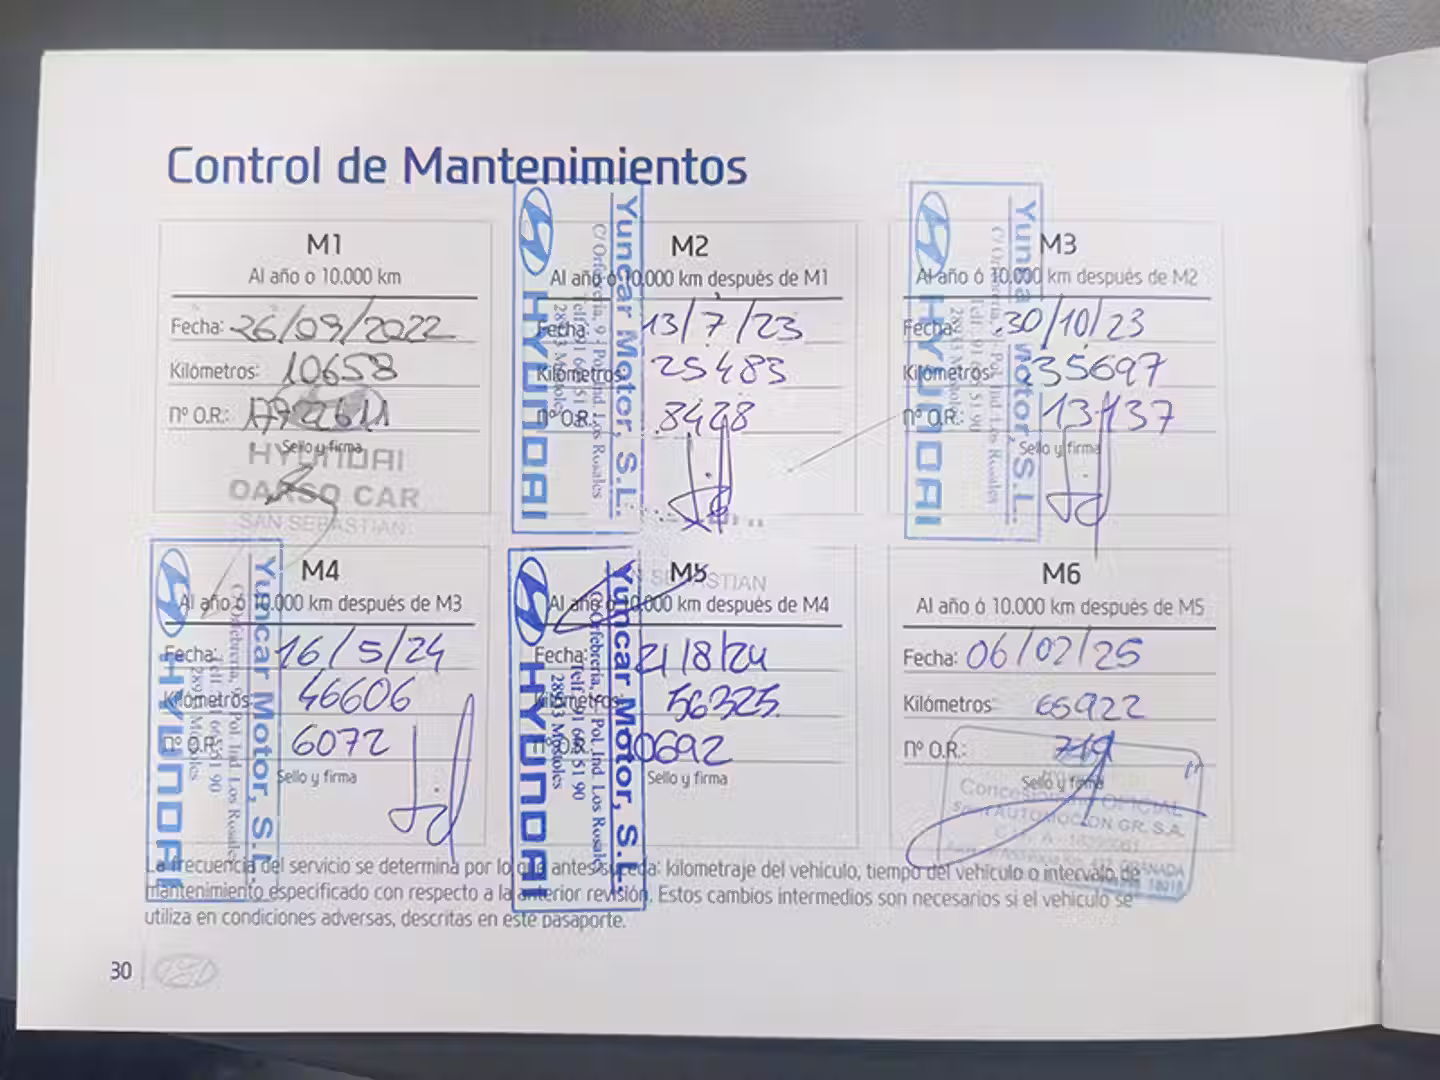 Control de Mantenimientos
M1
Al año o 10.000 km
Fecha: 26/09/2022
Kilómetros: 10658
nº O.R.:
Sello y firma
HYUNDAI
DARSO CAR
SAN SEBASTIAN
M2
Al año ó 10.000 km después de M1
Fecha: 13/7/23
Kilómetros: 25483
nº O.R.: 8428
Yuncar Motor, S.L.
C/ Orfebrería, 9 - Pol. Ind. Los Rosales
Telf. 91 665 51 90
28933 Móstoles
HYUNDAI
M3
Al año ó 10.000 km después de M2
Fecha: 30/10/23
Kilómetros: 35697
nº O.R.: 13137
Sello y firma
Yuncar Motor, S.L.
C/ Orfebrería, 9 - Pol. Ind. Los Rosales
Telf. 91 665 51 90
28933 Móstoles
HYUNDAI
M4
Al año ó 10.000 km después de M3
Fecha: 16/5/24
Kilómetros: 46606
nº O.R.: 6072
Sello y firma
Yuncar Motor, S.L.
C/ Orfebrería, 9 - Pol. Ind. Los Rosales
Telf. 91 665 51 90
28933 Móstoles
HYUNDAI
M5
SAN SEBASTIAN
Al año ó 10.000 km después de M4
Fecha: 21/8/24
Kilómetros: 56325
nº O.R.: 10692
Sello y firma
Yuncar Motor, S.L.
C/ Orfebrería, 9 - Pol. Ind. Los Rosales
Telf. 91 665 51 90
28933 Móstoles
HYUNDAI
M6
Al año ó 10.000 km después de M5
Fecha: 06/02/25
Kilómetros: 65922
nº O.R.: 719
Sello y firma
Concesionario OFICIAL
AUTOMOCION GR. S.A.
GRANADA
La frecuencia del servicio se determina por lo que antes suceda: kilometraje del vehículo, tiempo del vehículo o intervalo de
mantenimiento especificado con respecto a la anterior revisión. Estos cambios intermedios son necesarios si el vehículo se
utiliza en condiciones adversas, descritas en este pasaporte.
30